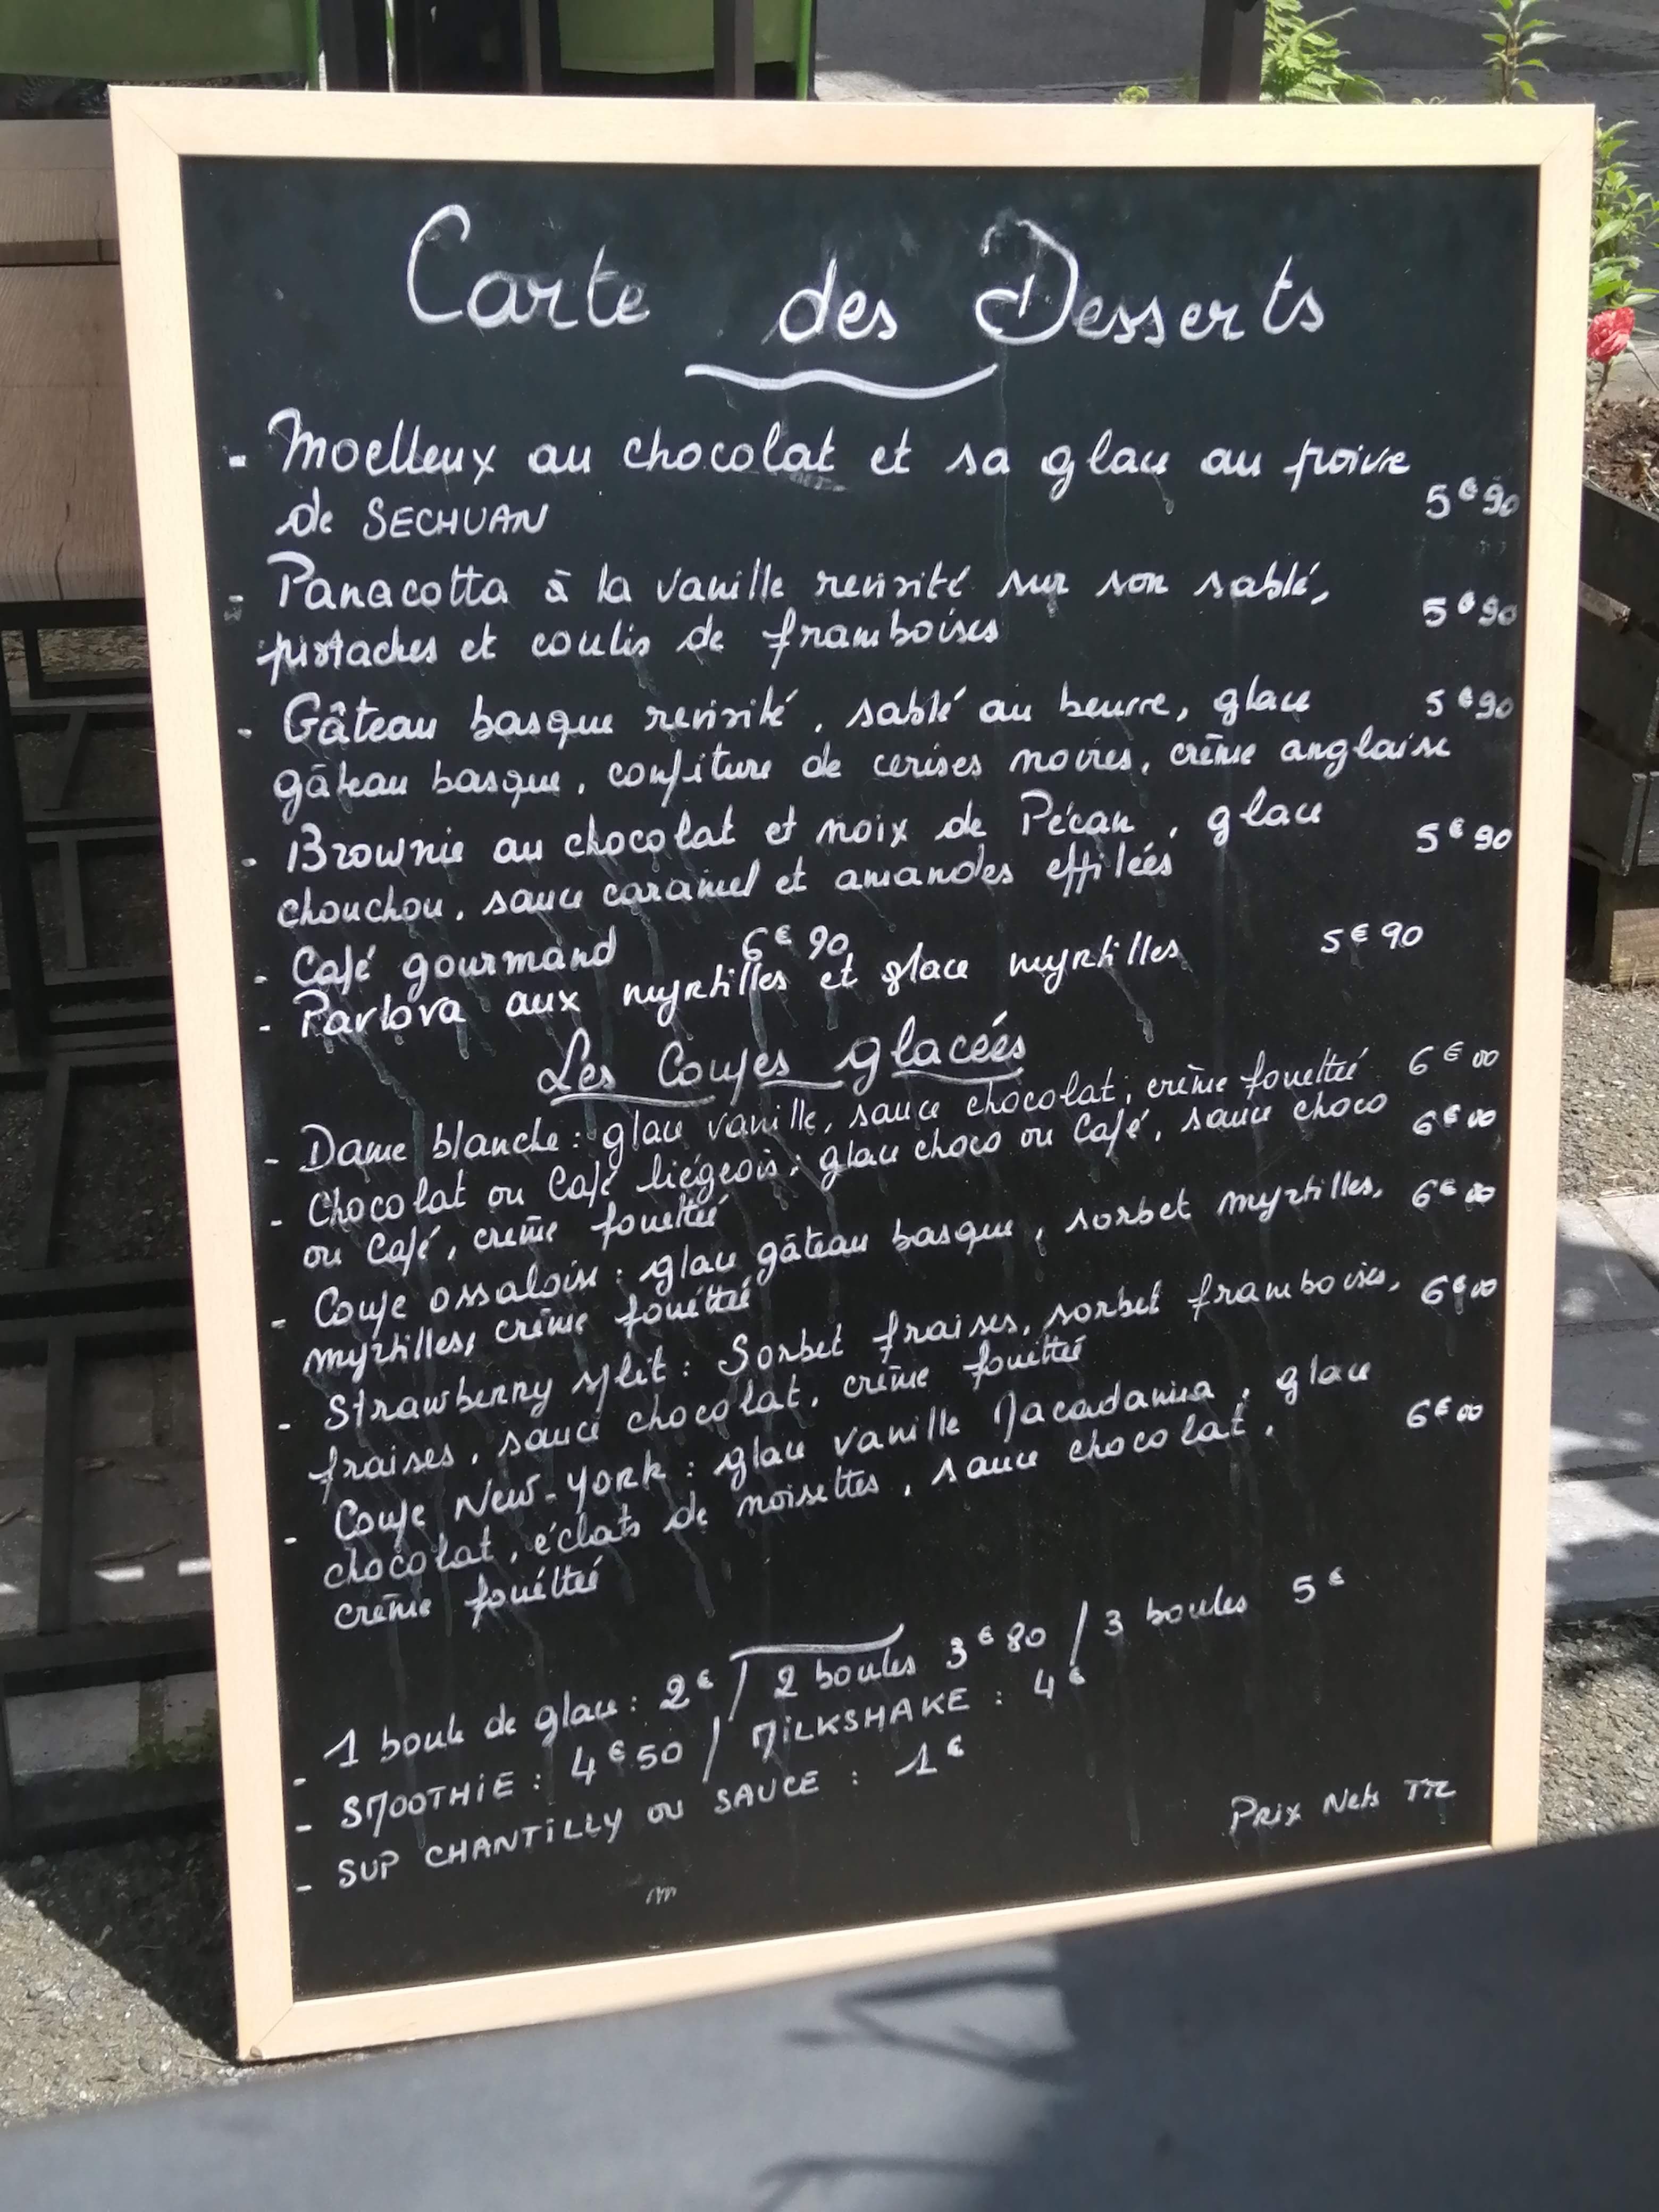 Carte des Desserts
- Moelleux au chocolat et sa glace au poivre
de SECHUAN 5€90
- Panacotta à la vanille revisité sur son sablé,
pistaches et coulis de framboises 5€90
- Gâteau basque revisité, sablé au beurre, glace 5€90
gâteau basque, confiture de cerises noires, crème anglaise
- Brownie au chocolat et noix de Pécan, glace
chouchou, sauce caramel et amandes effilées 5€90
- Café gourmand 6€90
- Pavlova aux myrtilles et glace myrtilles 5€90
Les Coupes glacées
- Dame blanche: glace vanille, sauce chocolat, crème fouettée 6€00
- Chocolat ou Café liégeois: glace choco ou Café, sauce choco 6€00
ou Café, crème fouettée
- Coupe ossaloise: glace gâteau basque, sorbet myrtilles, 6€00
myrtilles, crème fouéttée
- Strawberry split: Sorbet fraises, sorbet framboises, 6€00
fraises, sauce chocolat, crème fouéttée
- Coupe New-York: glace vanille Macadamia, glace
chocolat, éclats de noisettes, sauce chocolat, 6€00
crème fouéttée
- 1 boule de glace: 2€ / 2 boules 3€80 / 3 boules 5€
- SMOOTHIE: 4€50 / MILKSHAKE: 4€
- SUP CHANTILLY ou SAUCE: 1€
Prix Nets TTC